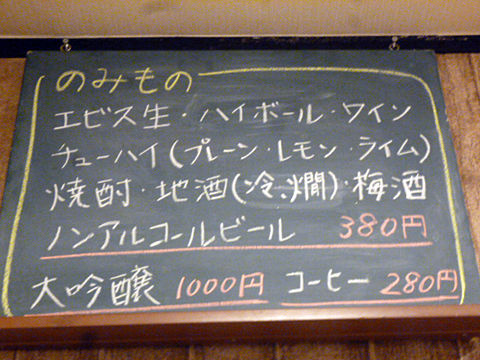 のみもの
エビス生・ハイボール・ワイン
チューハイ(プレーン・レモン・ライム)
焼酎・地酒(冷、燗)・梅酒
ノンアルコールビール 380円
大吟醸 1000円 コーヒー 280円